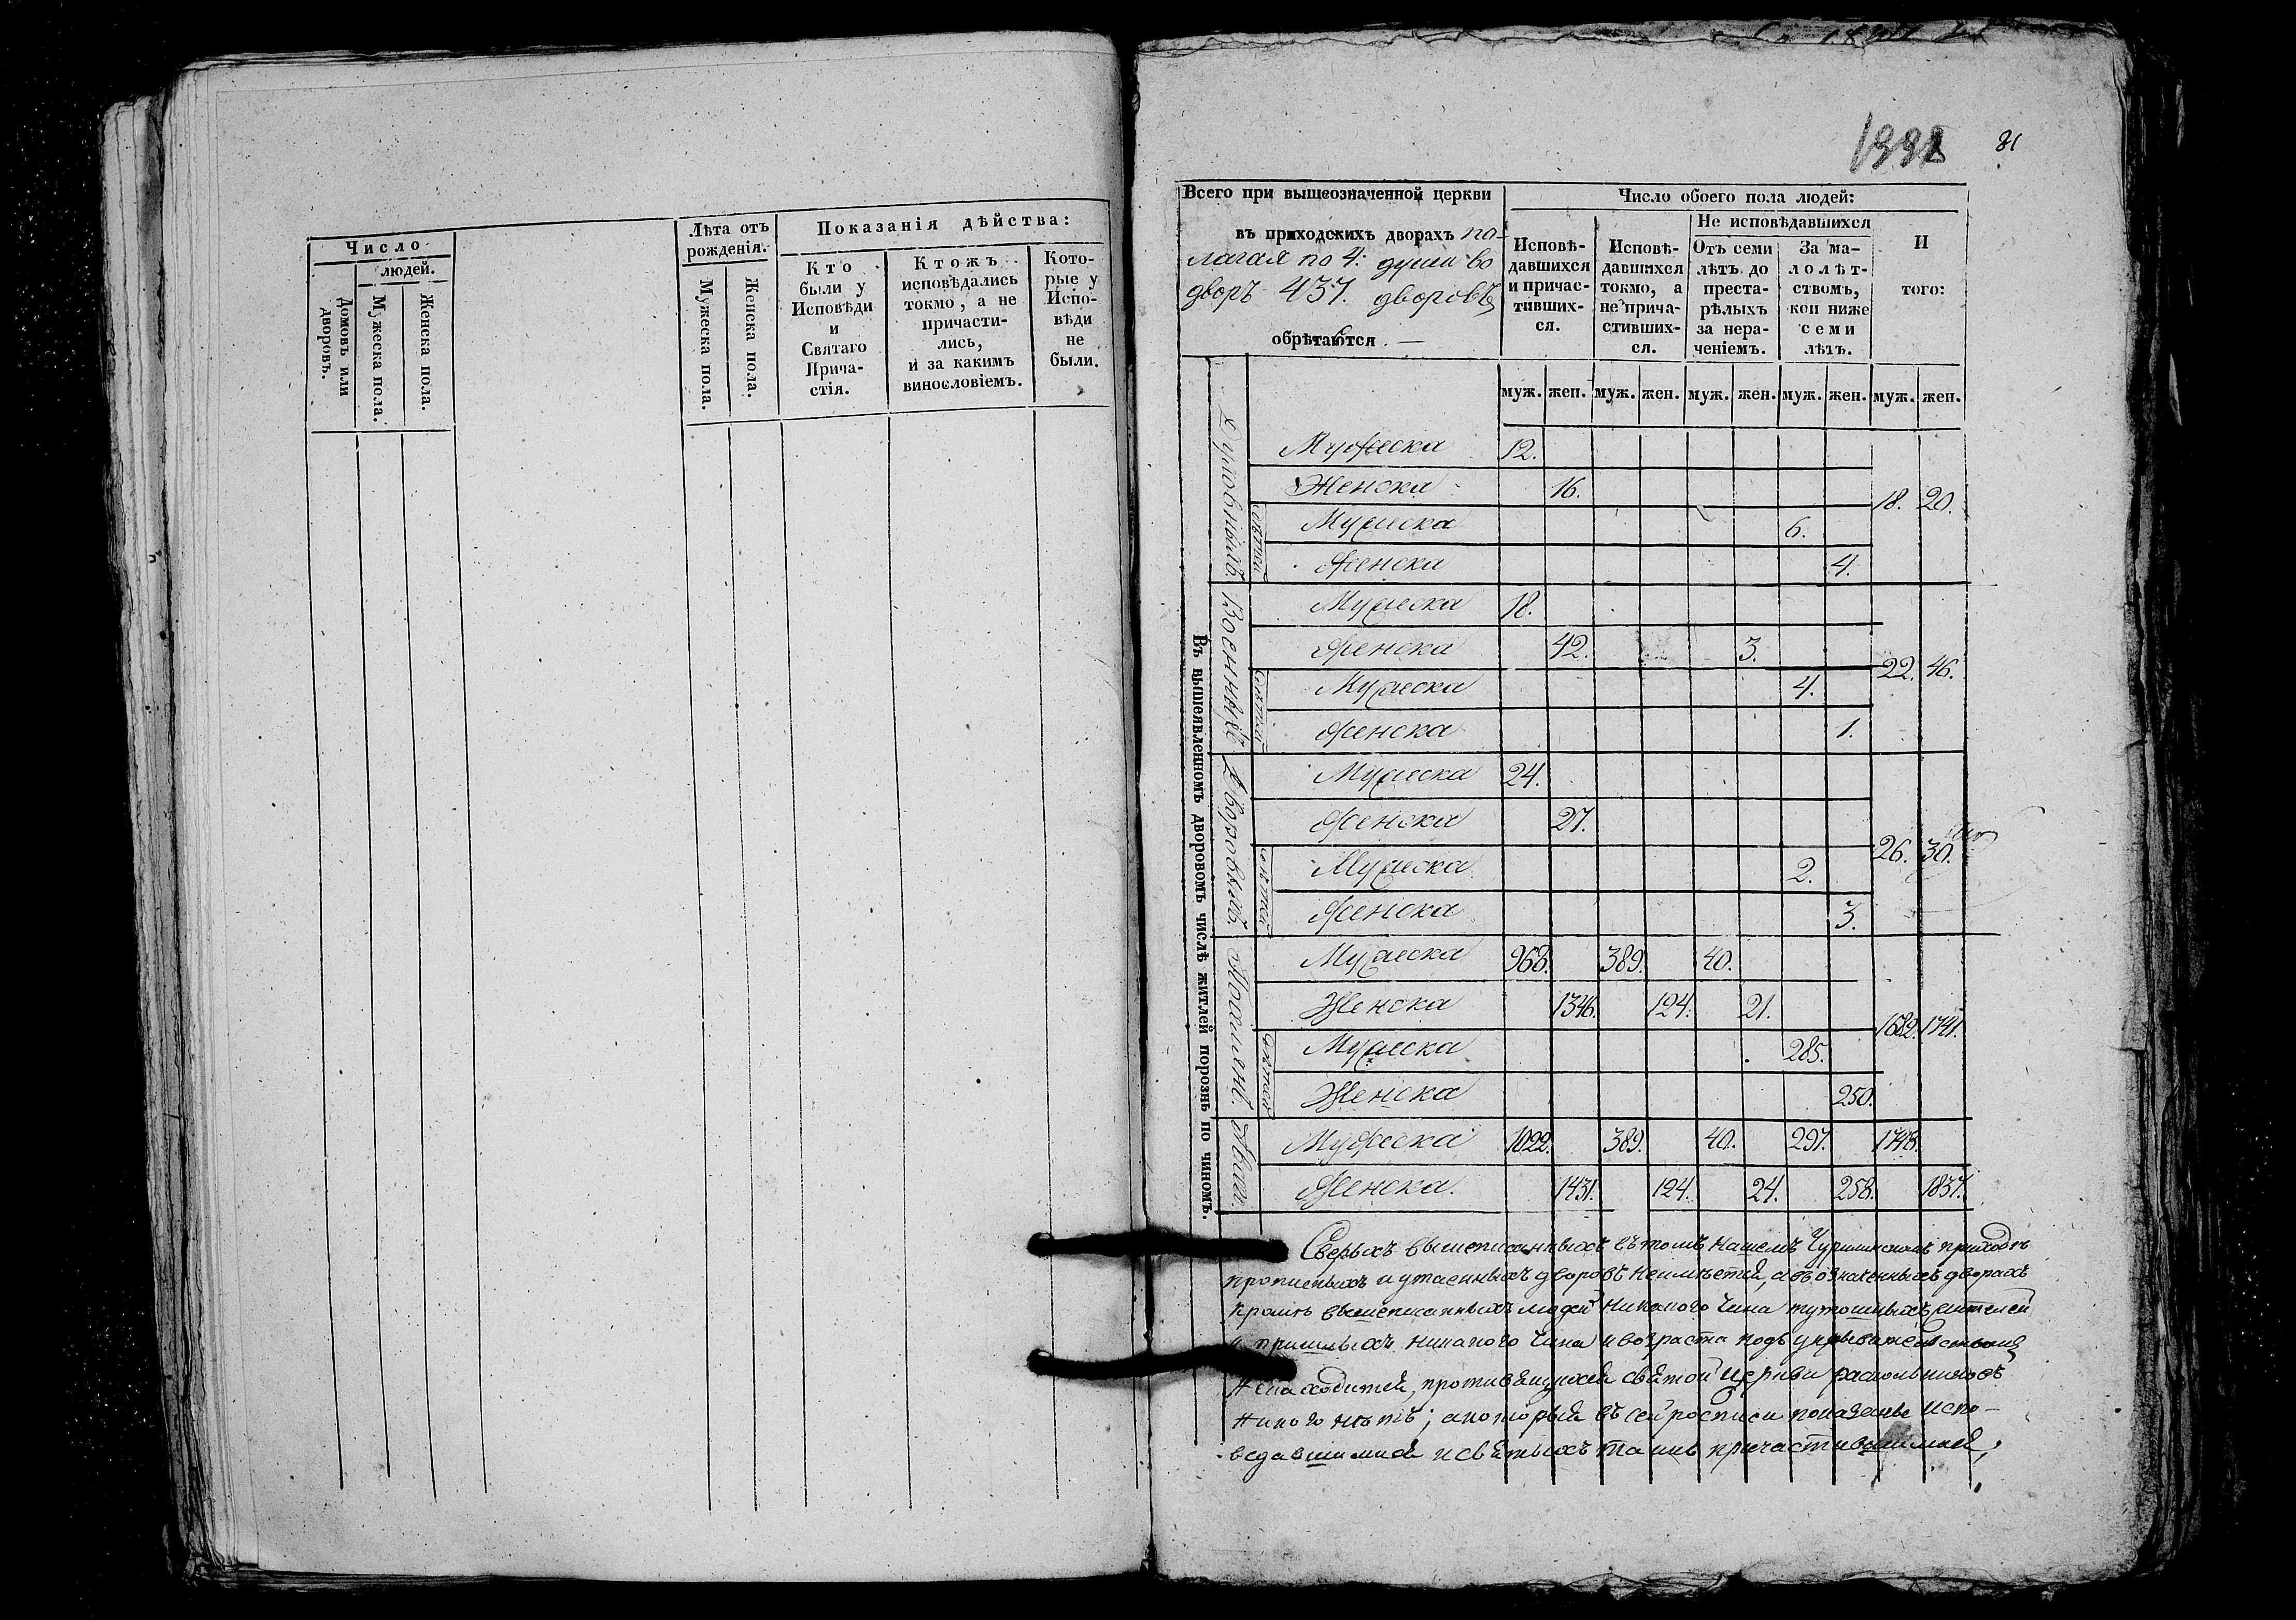 Число
людей.
Домовъ или дворовъ.
Мужеска пола.
Женска пола.
Лѣта отъ
рожденія.
Мужеска пола.
Женска пола.
Показанія дѣйства:
Кто
были у
Исповѣди
и
Святаго
Прича-
стія.
Ктожъ
исповѣдались
токмо, а не
причасти-
лись,
и за какимъ
винословіемъ.
Кото-
рые у
Испо-
вѣди
не
были.
81
Всего при вышеозначенной церкви
въ приходскихъ дворахъ по-
лагая по 4: души во
дворъ 437. дворовъ
обрѣтаются
Число обоего пола людей:
Исповѣ-
давшихся
и причас-
тивших-
ся.
Исповѣ-
давшихся
токмо, а
не прича-
стивших-
ся.
Не исповѣдавшихся
Отъ семи
лѣтъ до
преста-
рѣлыхъ
за нера-
ченіемъ.
За ма-
лолѣт-
ствомъ,
кои ниже
семи
лѣтъ.
И
того:
муж. жен. муж. жен. муж. жен. муж. жен. муж. жен.
Въ вышеявленномъ дворовомъ числѣ житлей порознь по чиномъ.
Духовныхъ
Мужеска 12.
Женска 16.
18. 20.
Мужеска 6.
Женска 4.
Военныхъ
Мужеска 18.
Женска 42. 3.
22. 46.
Мужеска 4.
Женска 1.
Дворовыхъ
Мужеска 24.
Женска 27.
26. 30.
Мужеска 2.
Женска 3.
Мужеска 968. 389. 40.
Женска 1346. 124. 21.
1682. 1741.
Мужеска 285.
Женска 250.
Мужеска 1022. 389. 40. 297. 1748.
Женска. 1431. 124. 24. 258. 1837.
Сверьхъ вышеписанныхъ въ томъ нашемъ приходѣ
прописныхъ и утаенныхъ дворовъ неимѣется, а въ означенныхъ дворахъ
кромѣ вышеписанныхъ людей никакого чина тутошныхъ жителей
и пришлыхъ никакого чина и возраста подъ
ненаходится, противящихся святой церкви раскольниковъ
никого нѣтъ; а которые въ сей росписи показаны испо-
ведавшимися и святыхъ таинъ причастившимися,